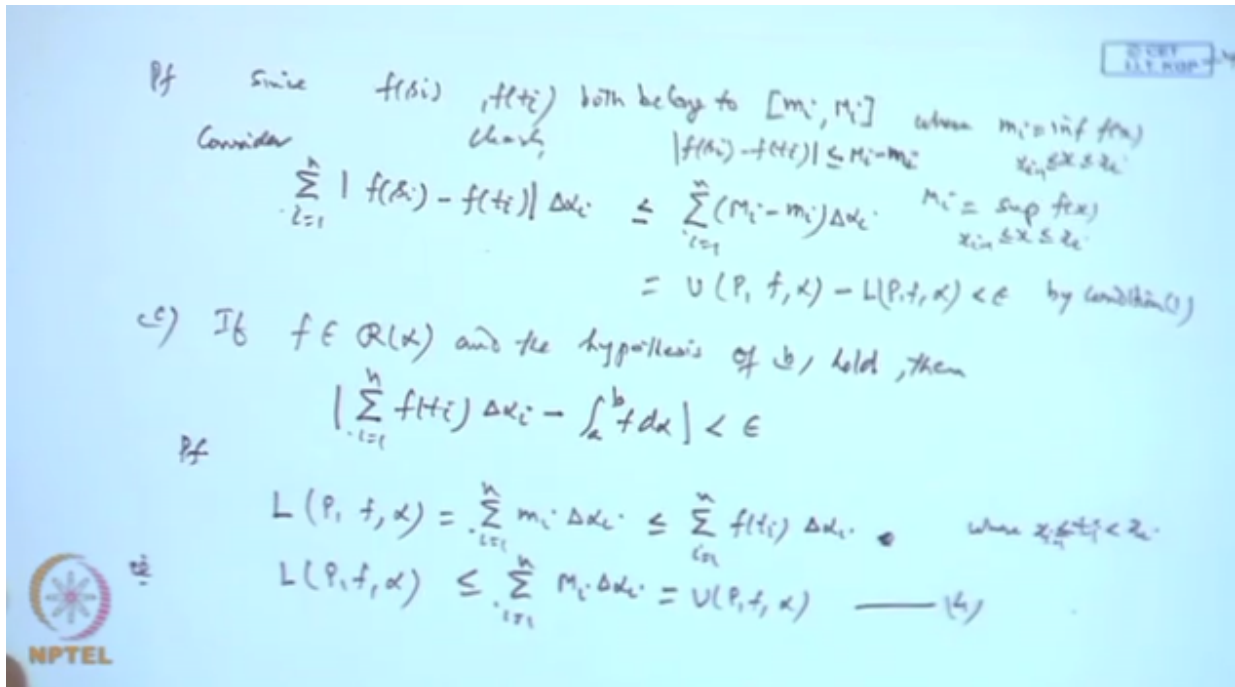 Pf Since f(si) , f(ti) both belong to [mi, Mi] where mi = inf f(x)
xi-1 ≤ x ≤ xi
Consider clearly |f(si) - f(ti)| ≤ Mi - mi
n∑i=1 | f(si) - f(ti)| Δαi ≤ n∑i=1 (Mi - mi) Δαi Mi = sup f(x)
xi-1 ≤ x ≤ xi
= U(P, f, α) - L(P, f, α) < ϵ by condition (1)
(c) If f ∈ R(α) and the hypothesis of b, hold, then
| n∑i=1 f(ti) Δαi - ∫ab f dα | < ϵ
Pf
L(P, f, α) = n∑i=1 mi Δαi ≤ n∑i=1 f(ti) Δαi where xi-1 ≤ ti < xi
L(P, f, α) ≤ n∑i=1 Mi Δαi = U(P, f, α) —— (4)
NPTEL